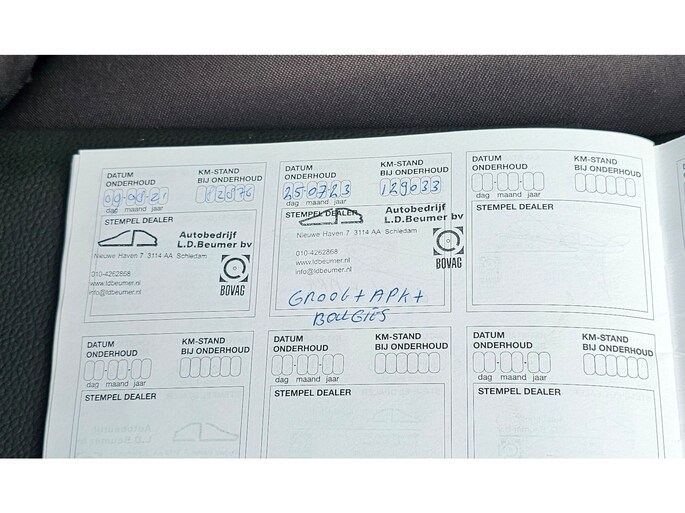 DATUM ONDERHOUD KM-STAND BIJ ONDERHOUD
09-08-21 112876
dag maand jaar
STEMPEL DEALER
Autobedrijf
L.D.Beumer bv
Nieuwe Haven 7 3114 AA Schiedam
010-4262868
www.ldbeumer.nl
info@ldbeumer.nl
BOVAG
DATUM ONDERHOUD KM-STAND BIJ ONDERHOUD
25-07-23 129033
dag maand jaar
STEMPEL DEALER
Autobedrijf
L.D.Beumer bv
Nieuwe Haven 7 3114 AA Schiedam
010-4262868
www.ldbeumer.nl
info@ldbeumer.nl
BOVAG
GROOT + APK +
BOUGIES
DATUM ONDERHOUD KM-STAND BIJ ONDERHOUD
dag maand jaar
STEMPEL DEALER
DATUM ONDERHOUD KM-STAND BIJ ONDERHOUD
dag maand jaar
STEMPEL DEALER
DATUM ONDERHOUD KM-STAND BIJ ONDERHOUD
dag maand jaar
STEMPEL DEALER
DATUM ONDERHOUD KM-STAND BIJ ONDERHOUD
dag maand jaar
STEMPEL DEALER